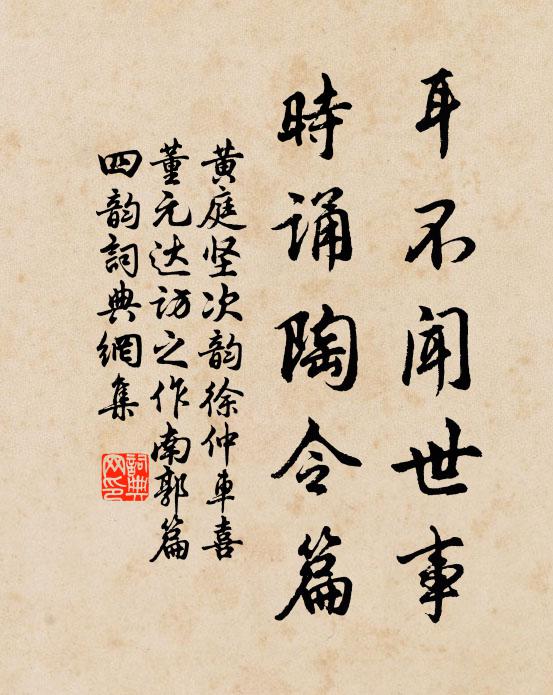 耳不闻世事
時诵陶令篇
黄庭坚次韵徐仲車喜
董元达访之作南郭篇
四韵詞典網集
詞典网印